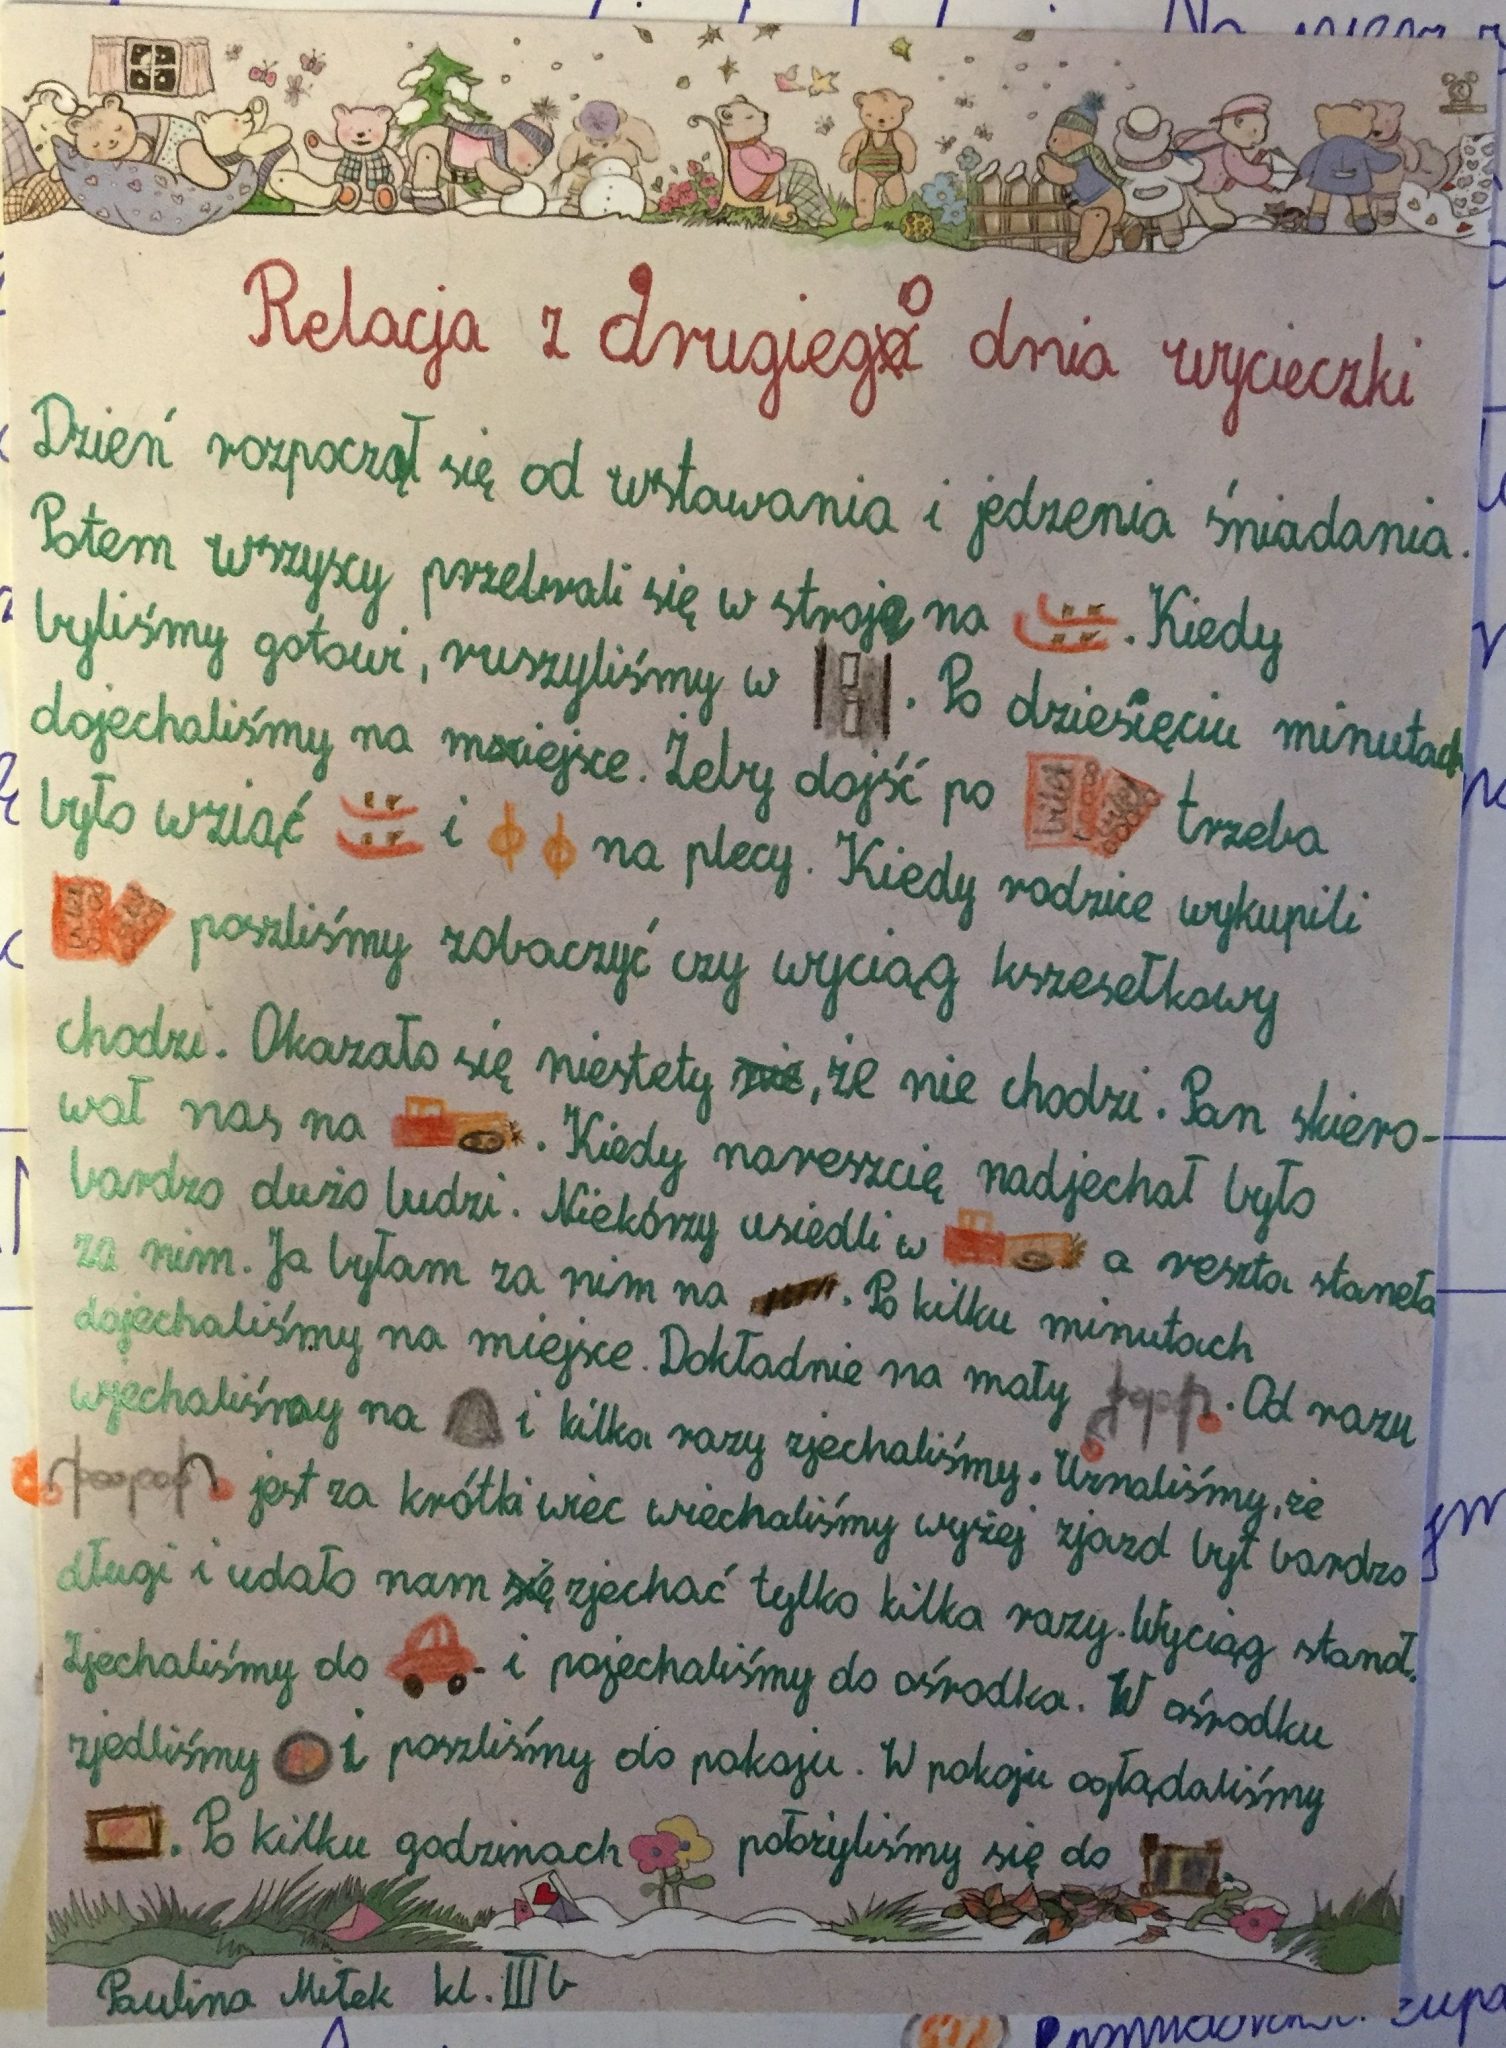 Relacja z drugiego dnia wycieczki
Dzień rozpoczął się od wstawania i jedzenia śniadania.
Potem wszyscy przebrali się w stroje na . Kiedy
byliśmy gotowi, ruszyliśmy w . Po dziesięciu minutach
dojechaliśmy na miejsce. Żeby dojść po bilet trzeba
było wziąć i na plecy. Kiedy rodzice wykupili
poszliśmy zobaczyć czy wyciąg kszesełkowy
chodzi. Okazało się niestety nie, że nie chodzi. Pan skiero-
wał nas na . Kiedy nareszcię nadjechał było
bardzo dużo ludzi. Niekórzy usiedli w a reszta staneła
za nim. Ja byłam za nim na . Po kilku minutach
dojechaliśmy na miejsce. Dokładnie na mały . Od razu
wjechaliśmy na i kilka razy zjechaliśmy. Uznaliśmy, że
jest za krótki wiec wiechaliśmy wyżej zjazd był bardzo
długi i udało nam się zjechać tylko kilka razy. Wyciąg stanoł.
Zjechaliśmy do i pojechaliśmy do ośrodka. W ośrodku
zjedliśmy i poszliśmy do pokoju. W pokoju ogłądaliśmy
. Po kilku godzinach położyliśmy się do .
Paulina Miłek kl. III b